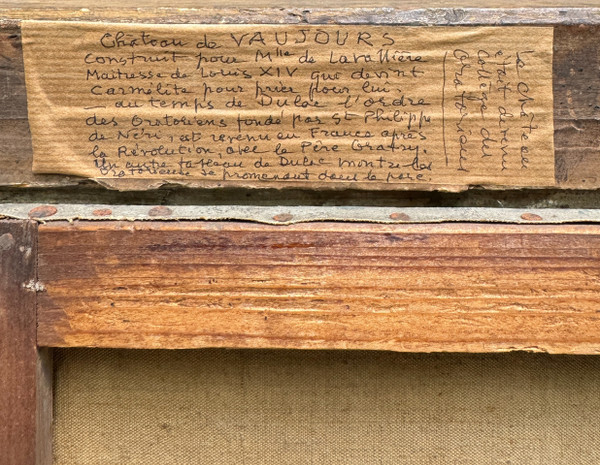 Château de VAUJOURS
Construit pour Mlle de Lavallière
Maitresse de Louis XIV que devint
Carmélite pour prier pour lui.
_ au temps de Dulac l'ordre
des Oratoriens fondé par St Philippe
de Néri, est revenu en France après
la Révolution avec le Père Gratry.
Un autre tableau de Dulac montre les
Oratoriens se promenant dans le parc
Le Château
était devenu
Collège du
Oratoriens